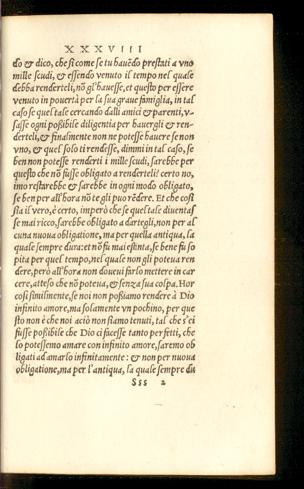 XXXVIII
do & dico, che si come se tu hauẽdo prestati a vno
mille scudi, & essendo venuto il tempo nel quale
debba renderteli, nõ gl' hauesse, et questo per essere
venuto in pouertà per la sua graue famiglia, in tal
caso se quel tale cercando dalli amici & parenti, v-
sasse ogni poßibile diligentia per hauergli & ren-
derteli, & finalmente non ne potesse hauere se non
vno, & quel solo ti rendesse, dimmi in tal caso, se
ben non potesse renderti i mille scudi, sarebbe per
questo che nõ fusse obligato a renderteli? certo no,
imo restarebbe & sarebbe in ogni modo obligato,
se ben per all'hora nõ te gli puo rẽdere. Et che cosi
stia il vero, è certo, imperò che se quel tale diuentas
se mai ricco, sarebbe obligato a dartegli, non per al
cuna noua obligatione, ma per quella antiqua, la
quale sempre dura: et nõ fu mai estinta, se bene fu so
pita per quel tempo, nel quale non gli poteua ren
dere, però all'hora non doueui farlo mettere in car
cere, atteso che nõ poteua, & senza sua colpa. Hor
cosi similmente, se noi non poßiamo rendere à Dio
infinito amore, ma solamente vn pochino, per que
sto non è che noi aciò non siamo tenuti, tal che s'ei
fusse poßibile che Dio ci facesse tanto perfetti, che
lo potessemo amare con infinito amore, saremo ob
ligati ad amarlo infinitamente: & non per nuoua
obligatione, ma per l'antiqua, la quale sempre du
Sss 2